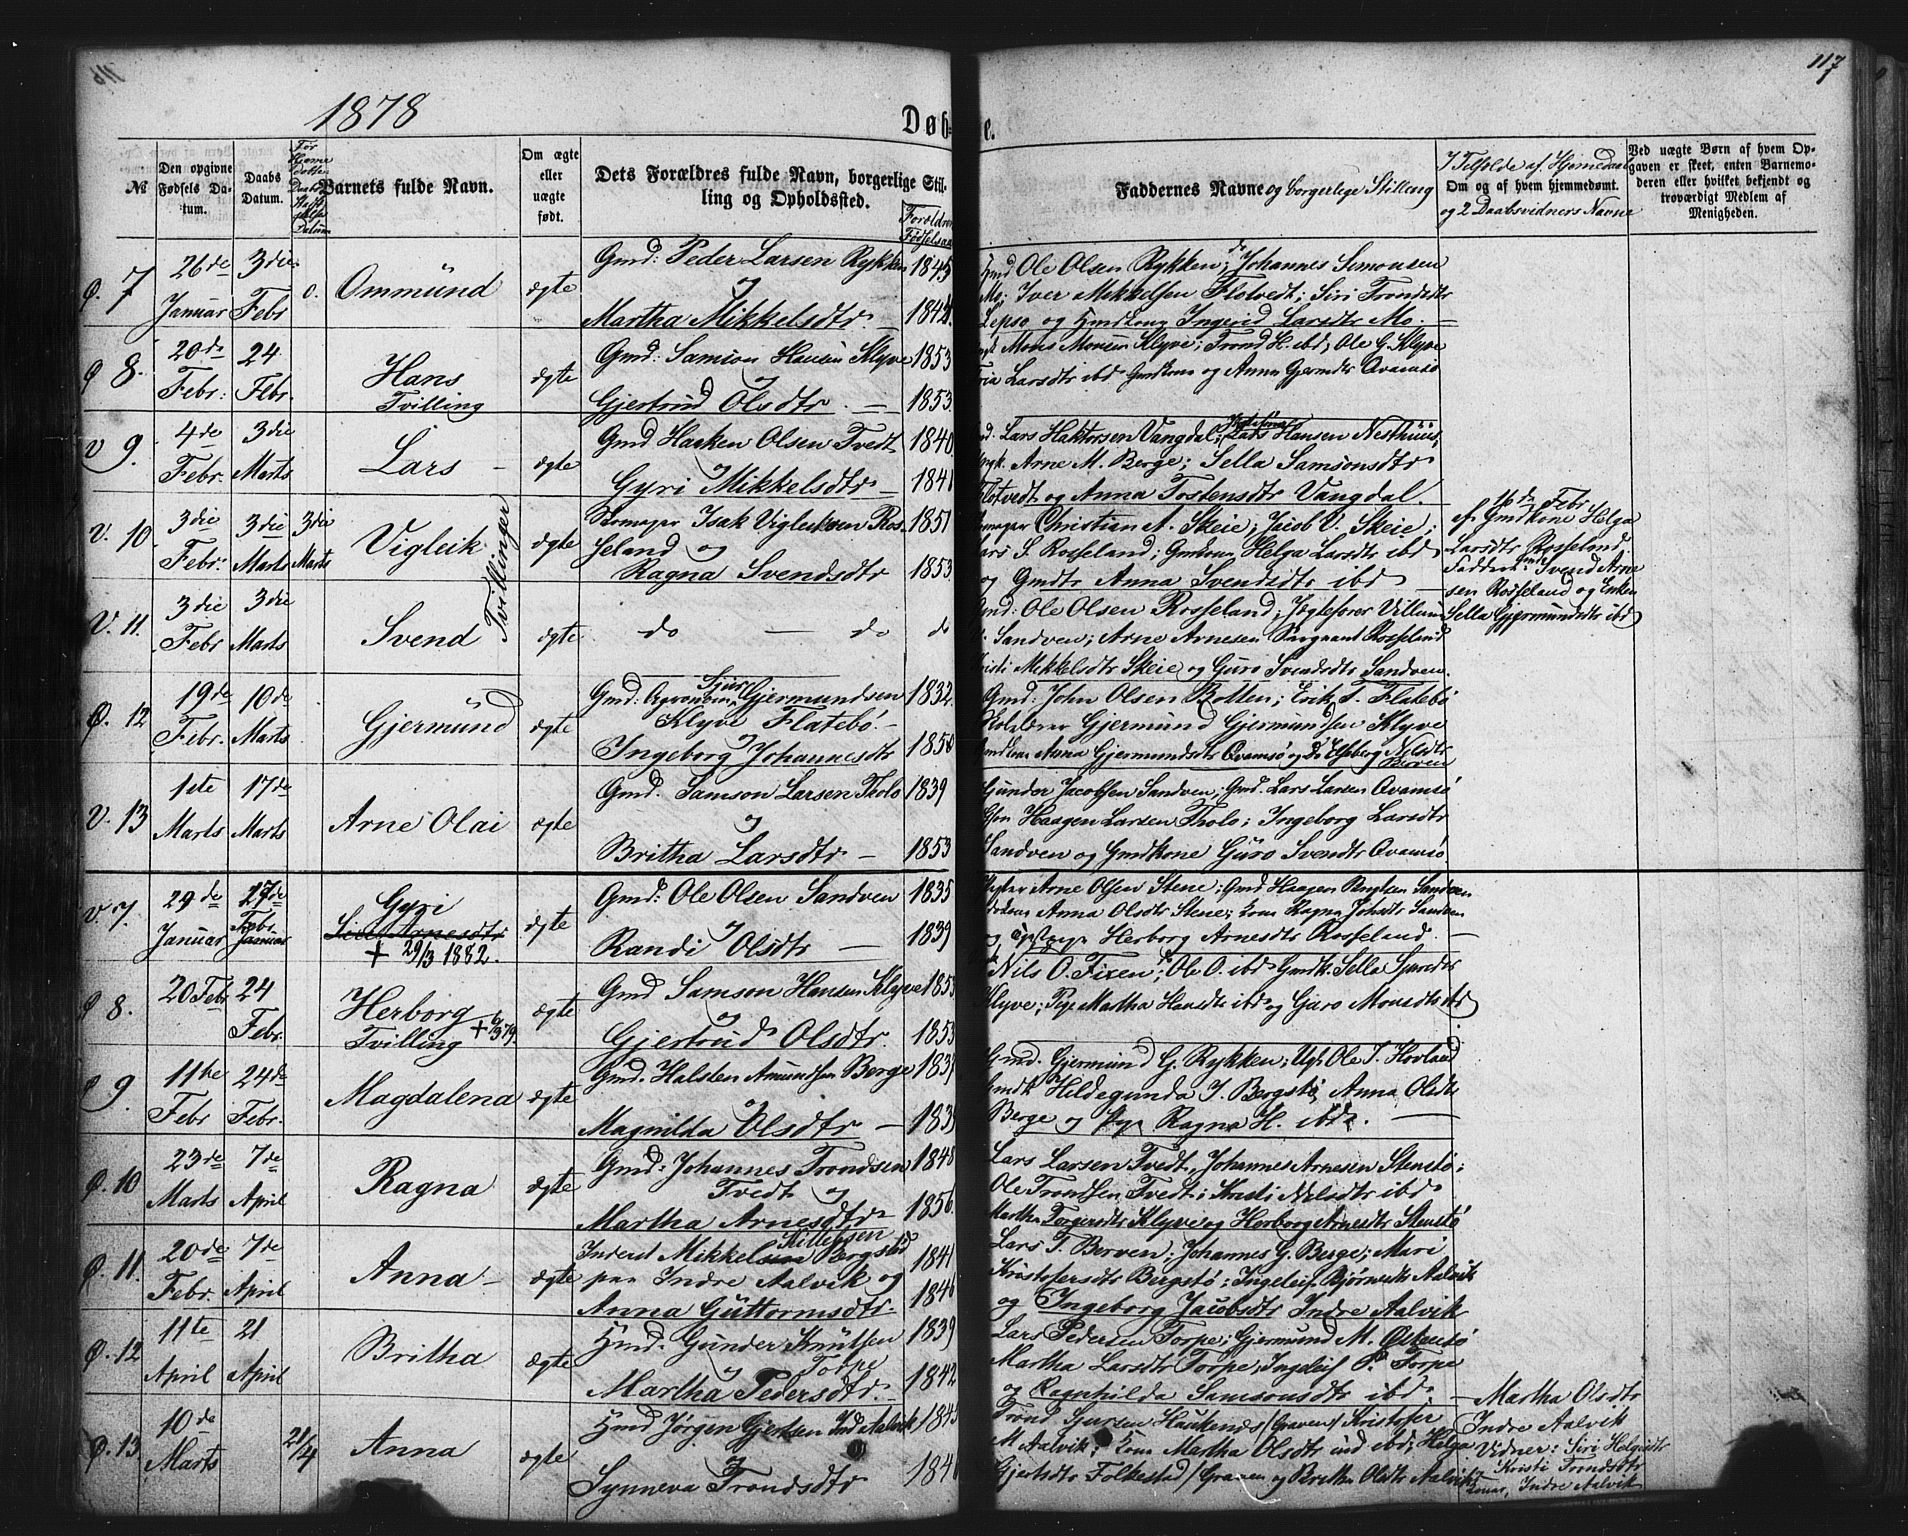 117
1878
Døb- e.
№
Den opgivne Fødsels Datum.
Daabs Datum.
Barnets fulde Navn.
Om ægte eller uægte født.
Dets Forældres fulde Navn, borgerlige Stilling og Opholdssted.
Forældres Fødselsaar
Faddernes Navne og borgerlige Stilling
I Tilfælde af Hjemmedaab
Om og af hvem hjemmedømt.
og 2 Daabsvidners Navne
Ved uægte Børn af hvem Opgaven er skeet, enten Barnemoderen eller hvilket bekjendt og troværdigt Medlem af Menigheden.
Ø. 7
26de Januar
3die Febr
0.
Ommund
ægte
Gmd: Peder Larsen Rykken 1845
og
Martha Mikkelsdtr. — 184
Gmd Ole Olsen Rykken; do Johannes Simonsen
Mo; Iver Mikkelsen Flotvedt; Siri Trondsdtr
Lepsø og Gmdkone Ingerid Larsdtr Mo. —
Ø 8.
20de Febr:
24 Febr.
Hans
Tvilling
ægte
Gmd: Samson Hansen Klyve 1853
og
Gjertrud Olsdtr. — 1853.
Mons Monsen Klyve; Trond H. ibd; Ole G. Klyve
Larsdtr ibd Gmdkone og Anna Gjermdtr Qvamsø
V 9.
4de Febr.
3die Marts
Lars —
ægte
Gmd Haaken Olsen Tvedt 1840
og
Gyri Mikkelsdtr — 1841
Lars Haktorsen Vangdal; Lars Hansen Nesthuus,
Arne M. Berge; Sella Samsonsdtr
Flotvedt og Anna Tostensdtr Vangdal.
V. 10
3die Febr:
3die Marts
3die Marts
Vigleik
Tvillinger
ægte
Isak Vigleiksen Ros- 1851
seland og
Ragna Svendsdtr 1853
Christian A. Skeie; Jacob V. Skeie;
Lars S. Rosseland; Gmdkone Helga Larsdtr ibd
og Gmdtr Anna Svendsdtr ibd —
16de Febr
af Gmdkone Helga
Larsdtr Rosseland.
Faddere: Gmd Svend Arne
sen Rosseland og Enken
Sella Gjermundsdtr ibd
V. 11.
3die Febr
3die Marts
Svend
ægte
do — do do
Gmd: Ole Olsen Rosseland; Villum
Sandven; Arne Arnesen Rosseland
Kristi Mikkelsdtr Skeie og Guro Svendsdtr Sandven.
Ø. 12
19de Febr.
10de Marts
Gjermund
ægte
Gmd: Sjur Gjermundsen 1832.
Klyve Flatebø. —
og
Ingeborg Johannesdtr 1850
Gmd: John Olsen Botten; Erik T. Flatebø
Gjermund Gjermundsen Klyve
Gmdkone Anna Gjermundsdtr Qvamsø og Do Elseberg Nilsdtr
Berven
V. 13
1ste Marts
17de Marts
Arne Olai
ægte
Gmd. Samson Larsen Tholo 1839
og
Britha Larsdtr — 1853
Gunder Jacobsen Sandven; Gmd. Lars Larsen Qvamsø
Haagen Larsen Tholo; Ingeborg Larsdtr
Sandven og Gmdkone Guro Svendsdtr Qvamsø
V 7.
29de Januar
17de Febr. Januar
Gyri
Arnesdtr
+ 29/3 1882.
ægte
Gmd: Ole Olsen Sandven 1835
og
Randi Olsdtr — 1839
Arne Olsen Stene; Gmd Haagen Sandven
Anna Olsdtr Stene; Kone Ragna Johsdtr Sandven
og Herborg Arnesdtr Rosseland. —
Ø 8.
20 Febr
24 Febr.
Herborg
Tvilling +
ægte
Gmd Samson Hansen Klyve 1853
og
Gjertrud Olsdtr. 1853
Nils O. Fixen; do Ole O. ibd Gmdk. Sella Sjursdtr
Klyve; Pige Martha Hansdtr ibd og Guro Monsdtr ibd
Ø 9.
11te Febr
24de Febr.
Magdalena
ægte
Gmd. Halsten Amundsen Berge 1837
og
Magnilda Olsdtr — 183
Gmd. Gjermund G. Rykken; Ugk Ole T. Hovland
Gmdk Hildegunda J. Bergstø Anna Olsdtr
Berge og Pige Ragna H. ibd. —
Ø. 10
23de Marts
7de April
Ragna
ægte
Gmd: Johannes Trondsen 1848
Tvedt og
Martha Arnesdtr — 1856.
Lars Larsen Tvedt, Johannes Arnesen Stenstø;
Ole Trondsen Tvedt; Kristi Nilsdtr ibd
Martha Torgersdtr Klyve og Herborg Arnesdtr Stenstø
Ø. 11.
20de Febr.
7de April
Anna —
ægte
Inderst Mikkel Killejsen Bergstø 1841
paa Indre Aalvik og
Anna Guttormsdtr. 1846
Lars T. Berven; Johannes G. Berge; Mari
Kristofersdtr Bergstø; Ingeleif Bjørnsdtr Aalvik
og Ingeborg Jacobsdtr Indre Aalvik
Ø. 12
11te April
21 April
Britha
ægte
Hmd. Gunder Knutsen 1839
og Torpe
Martha Pedersdtr. 1842
Lars Pedersen Torpe; Gjermund M. Qvamsø
Martha Larsdtr Torpe, Ingeleif P. Torpe
og Ragnhilda Samsonsdtr ibd.
Ø. 13
10de Marts
21/4
Anna
ægte
Hmd Jørgen Gjertsen Ind Aalvik 1845
og
Synneva Trondsdtr 184
Trond Sjursen Haukenæs (Graven) Kristofer
M Aalvik; Kone Martha Olsdtr ind ibd; Helga
Gjertsdtr Folkestad (Graven og Britha Olsdtr Aalvik
— Martha Olsdtr
Indre Aalvik
Vidner: Siri Helgesdtr
Kristi Trondsdtr
Indre Aalvik